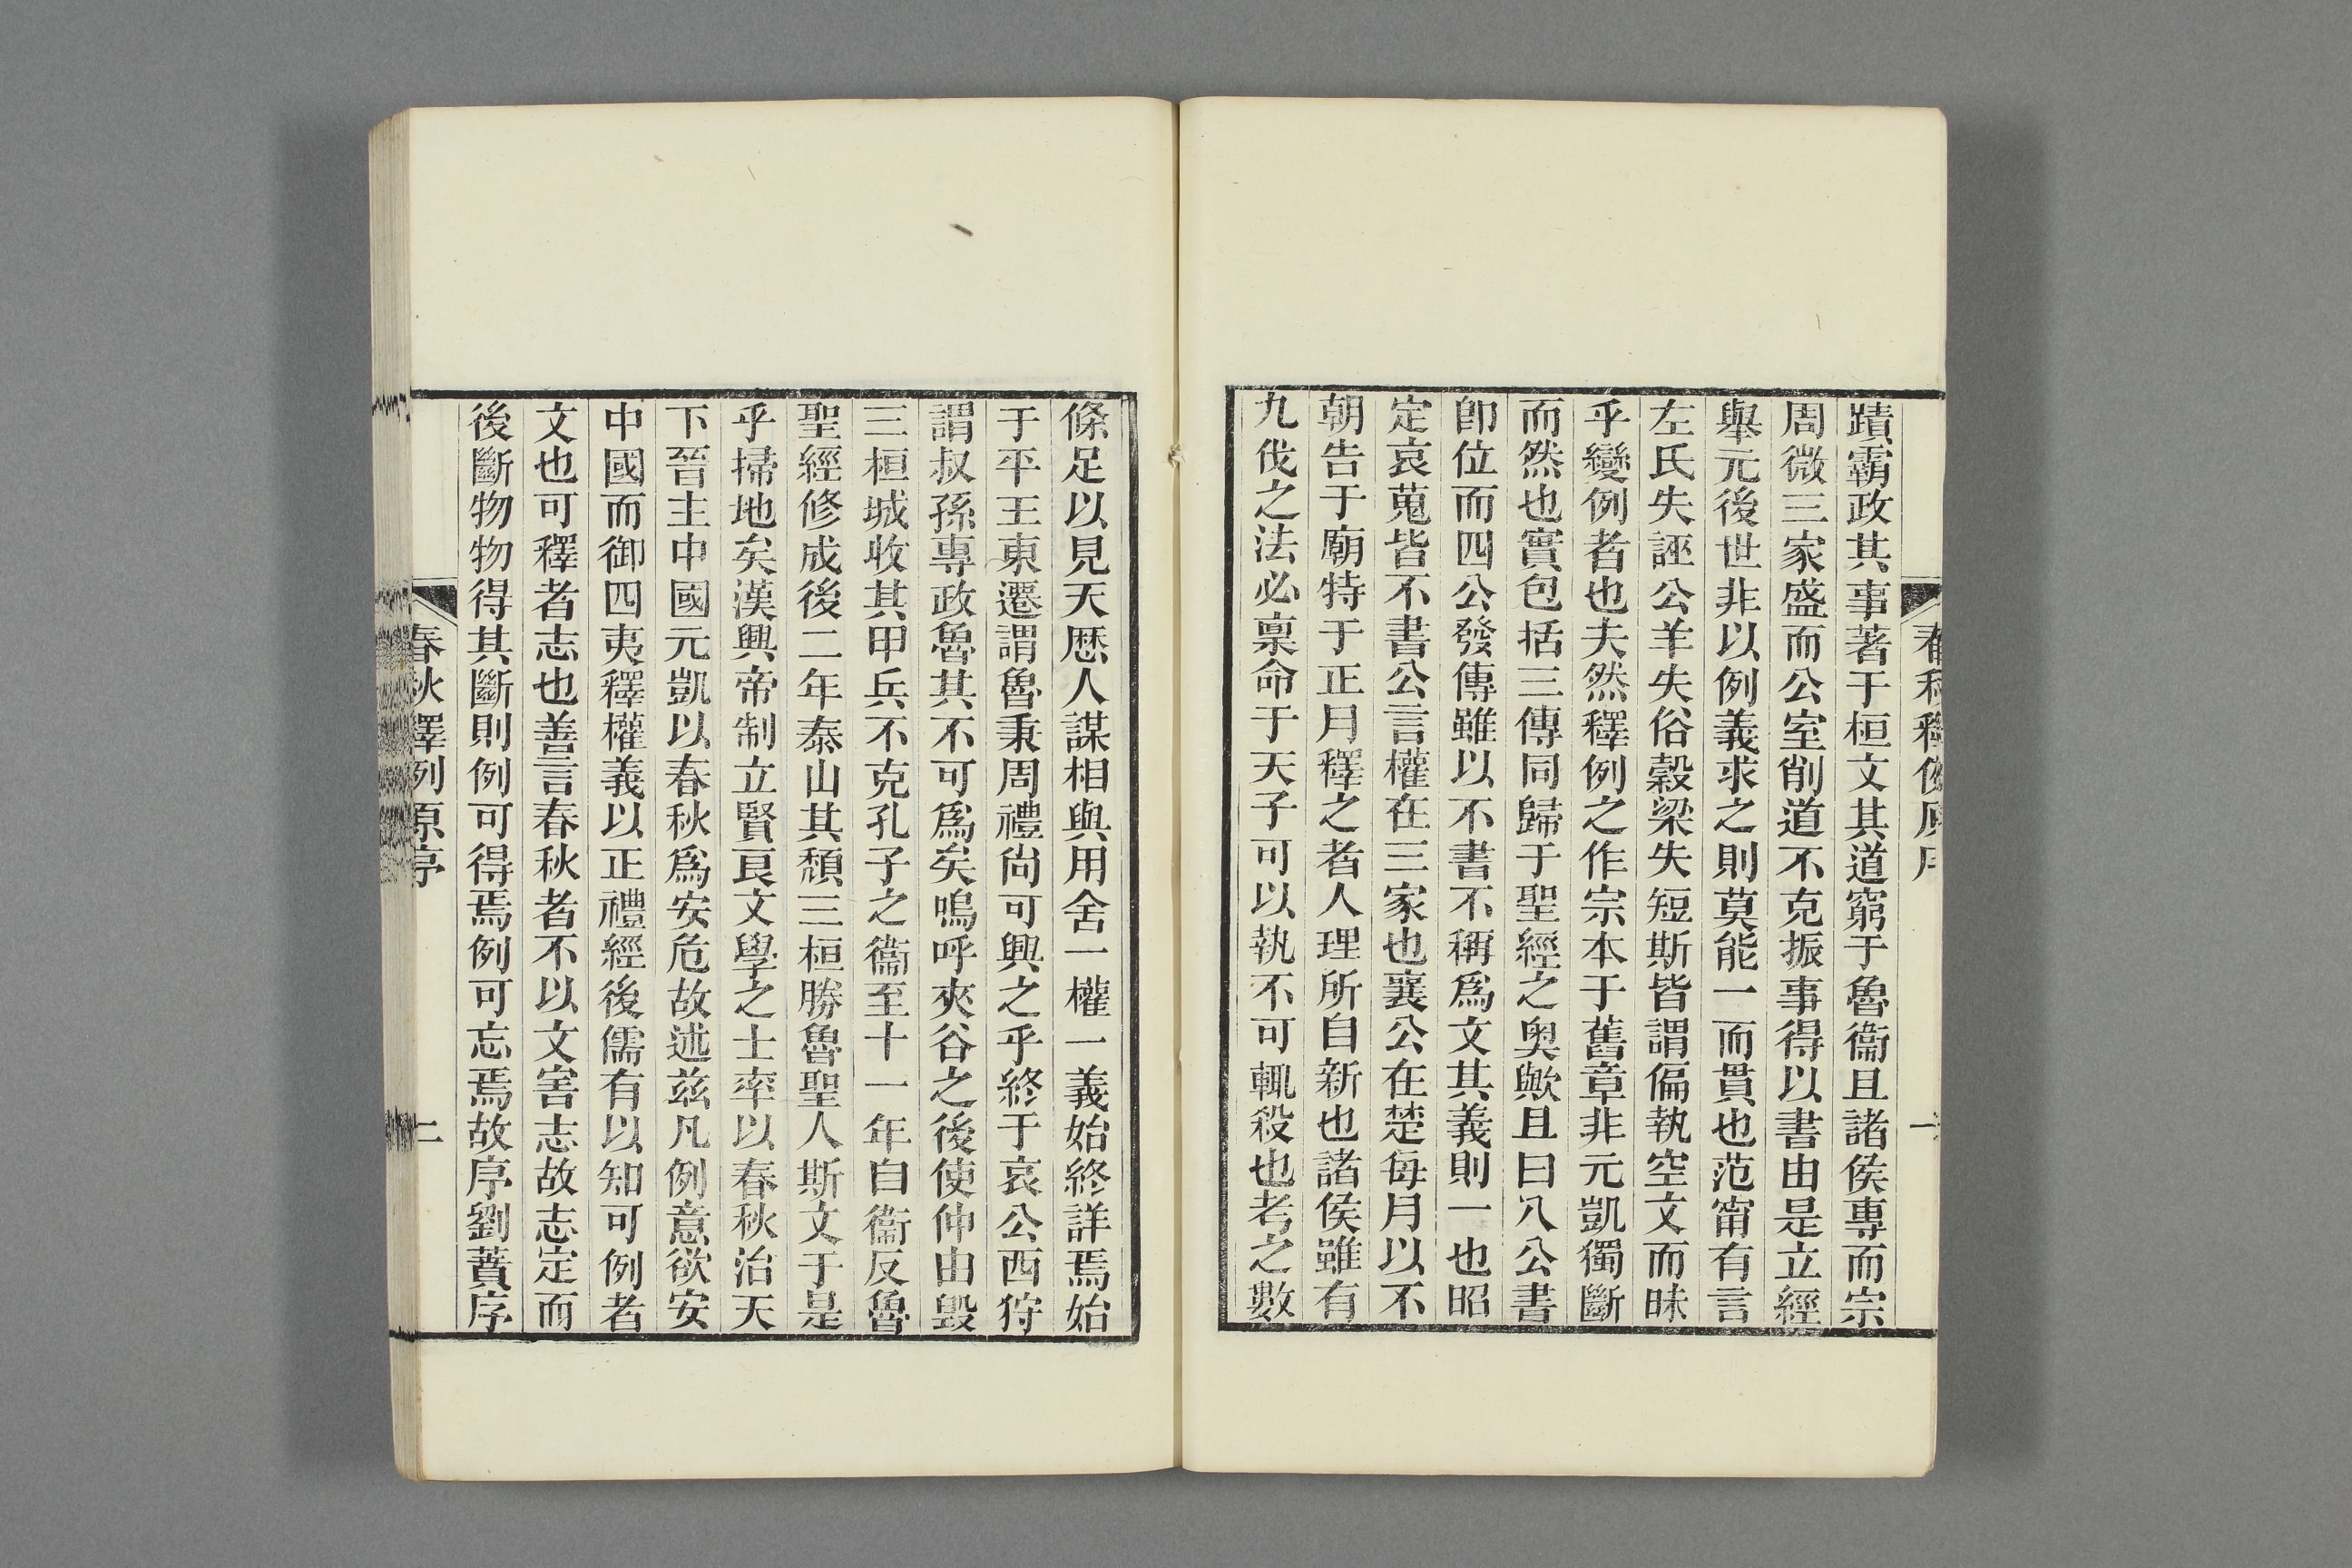 春秋釋例原序
一
蹟霸政其事著于桓文其道窮于魯衞且諸侯專而宗
周微三家盛而公室削道不克振事得以書由是立經
舉元後世非以例義求之則莫能一而貫也范甯有言
左氏失誣公羊失俗糓梁失短斯皆謂偏執空文而昧
乎變例者也夫然釋例之作宗本于舊章非元凱獨斷
而然也實包括三傳同歸于聖經之奧歟且曰八公書
卽位而四公發傳雖以不書不稱爲文其義則一也昭
定哀蒐皆不書公言權在三家也襄公在楚每月以不
朝告于廟特于正月釋之者人理所自新也諸侯雖有
九伐之法必禀命于天子可以執不可輒殺也考之數
條足以見天厯人謀相與用舍一權一義始終詳焉始
于平王東遷謂魯秉周禮尙可興之乎終于哀公西狩
謂叔孫專政魯其不可爲矣嗚呼夾谷之後使仲由毀
三桓城收其甲兵不克孔子之衞至十一年自衞反魯
聖經修成後二年泰山其頹三桓勝魯聖人斯文于是
乎掃地矣漢興帝制立賢良文學之士率以春秋治天
下晉主中國元凱以春秋爲安危故述兹凡例意欲安
中國而御四夷釋權義以正禮經後儒有以知可例者
文也可釋者志也善言春秋者不以文害志故志定而
後斷物物得其斷則例可得焉例可忘焉故序劉蕡序
春秋釋例原序
二